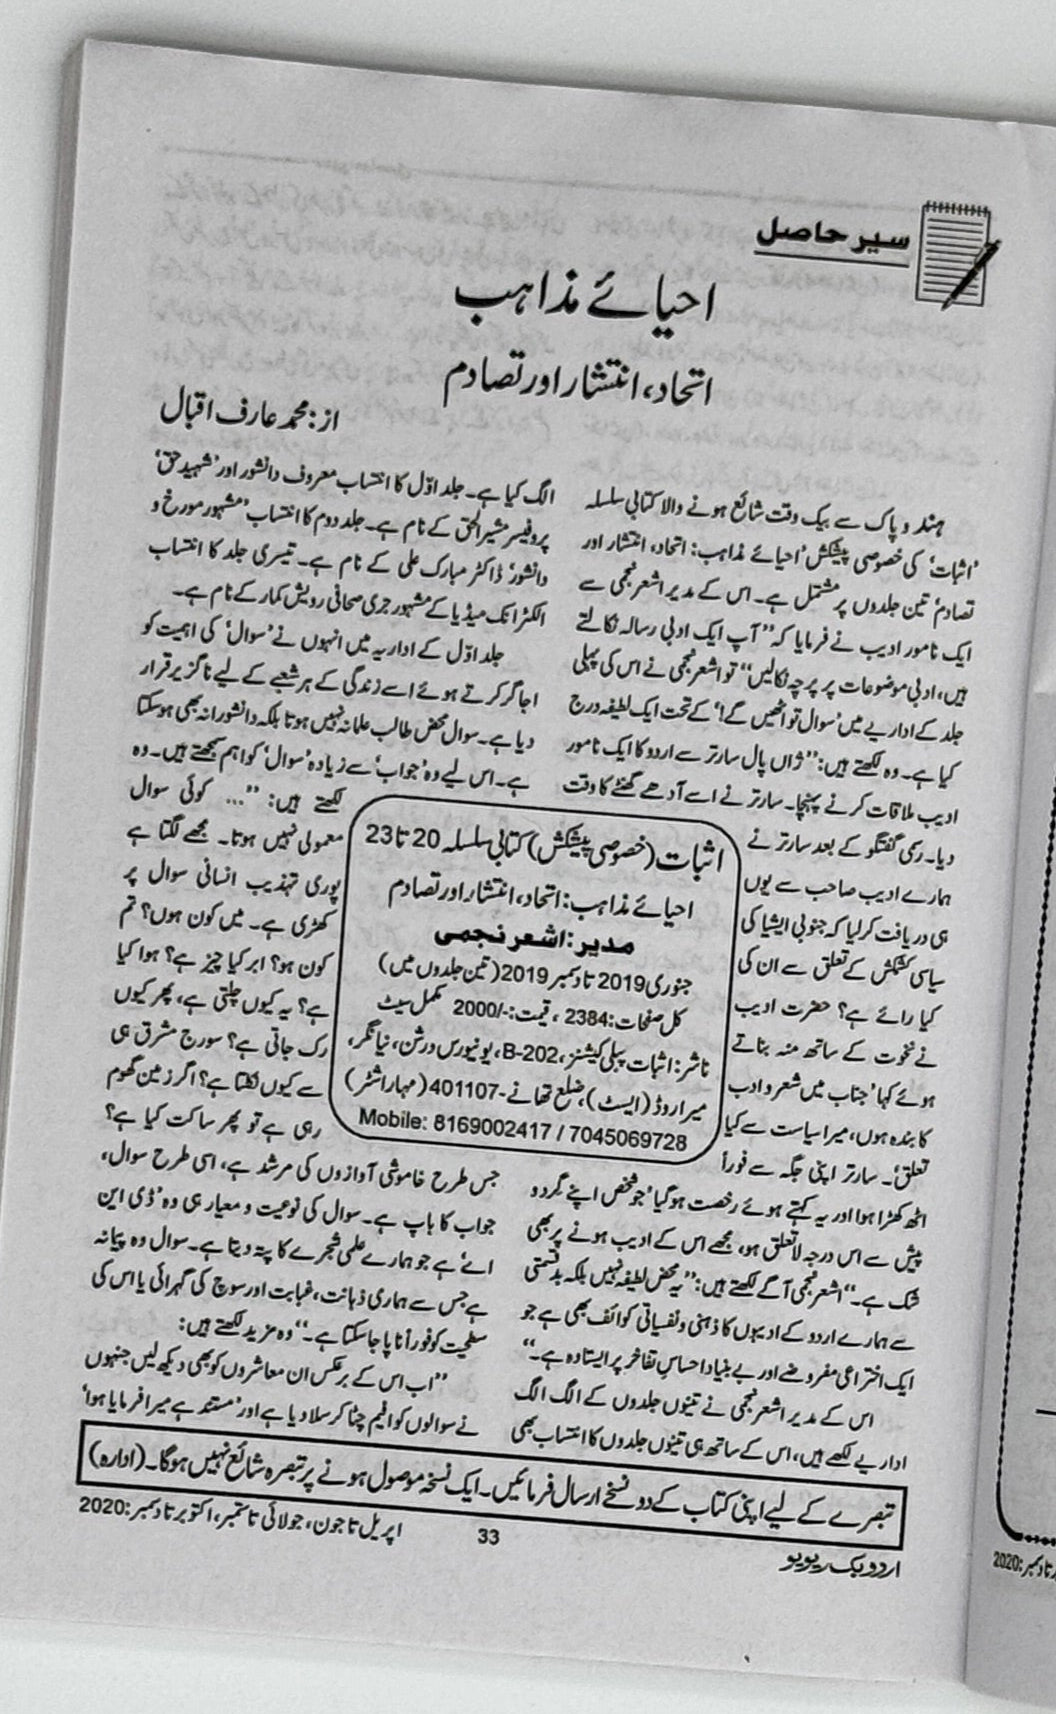 سیر حاصل
احیائے مذاہب
اتحاد، انتشار اور تصادم
از: محمد عارف اقبال
ہند و پاک سے بیک وقت شائع ہونے والا کتابی سلسلہ
’اثبات‘ کی خصوصی پیشکش ’احیائے مذاہب: اتحاد، انتشار اور
تصادم‘ تین جلدوں پر مشتمل ہے۔ اس کے مدیر اشعر نجمی سے
ایک نامور ادیب نے فرمایا کہ ’’آپ ایک ادبی رسالہ نکالتے
ہیں، ادبی موضوعات پر پرچہ نکالیں‘‘ تو اشعر نجمی نے اس کی پہلی
جلد کے اداریے میں ’سوال تو اٹھیں گے!‘ کے تحت ایک لطیفہ درج
کیا ہے۔ وہ لکھتے ہیں: ’’ژاں پال سارتر سے اردو کا ایک نامور
ادیب ملاقات کرنے پہنچا۔ سارتر نے اسے آدھے گھنٹے کا وقت
دیا۔ رسمی گفتگو کے بعد سارتر نے
ہمارے ادیب صاحب سے یوں
ہی دریافت کرلیا کہ جنوبی ایشیا کی
سیاسی کشمکش کے تعلق سے ان کی
کیا رائے ہے؟ حضرت ادیب
نے نخوت کے ساتھ منہ بناتے
ہوئے کہا ’جناب میں شعر و ادب
کا بندہ ہوں، میرا سیاست سے کیا
تعلق‘۔ سارتر اپنی جگہ سے فوراً
اٹھ کھڑا ہوا اور یہ کہتے ہوئے رخصت ہوگیا ’جو شخص اپنے گرد و
پیش سے اس درجہ لاتعلق ہو، مجھے اس کے ادیب ہونے پر بھی
شک ہے۔‘‘ اشعر نجمی آگے لکھتے ہیں: ’’یہ محض لطیفہ نہیں بلکہ بدقسمتی
سے ہمارے اردو کے ادیبوں کا ذہنی و نفسیاتی کوائف بھی ہے جو
ایک اختراعی مفروضے اور بے بنیاد احساسِ تفاخر پر ایستادہ ہے۔‘‘
اس کے مدیر اشعر نجمی نے تینوں جلدوں کے الگ الگ
اداریے لکھے ہیں، اس کے ساتھ ہی تینوں جلدوں کا انتساب بھی
الگ کیا ہے۔ جلد اوّل کا انتساب معروف دانشور اور ’شہیدِ حق‘
پروفیسر مشیر الحق کے نام ہے۔ جلد دوم کا انتساب ’مشہور مورخ و
دانشور‘ ڈاکٹر مبارک علی کے نام ہے۔ تیسری جلد کا انتساب
الکٹرانک میڈیا کے مشہور جری صحافی رویش کمار کے نام ہے۔
جلد اوّل کے اداریہ میں انہوں نے ’سوال‘ کی اہمیت کو
اجاگر کرتے ہوئے اسے زندگی کے ہر شعبے کے لیے ناگزیر قرار
دیا ہے۔ سوال محض طالب علمانہ نہیں ہوتا بلکہ دانشورانہ بھی ہوسکتا
ہے۔ اس لیے وہ ’جواب‘ سے زیادہ ’سوال‘ کو اہم سمجھتے ہیں۔ وہ
لکھتے ہیں: ’’... کوئی سوال
معمولی نہیں ہوتا۔ مجھے لگتا ہے
پوری تہذیب انسانی سوال پر
کھڑی ہے۔ میں کون ہوں؟ تم
کون ہو؟ ابر کیا چیز ہے؟ ہوا کیا
ہے؟ یہ کیوں چلتی ہے، پھر کیوں
رک جاتی ہے؟ سورج مشرق ہی
سے کیوں نکلتا ہے؟ اگر زمین گھوم
رہی ہے تو پھر ساکت کیا ہے؟
جس طرح خاموشی آوازوں کی مرشد ہے، اسی طرح سوال،
جواب کا باپ ہے۔ سوال کی نوعیت و معیار ہی وہ ’ڈی این
اے‘ ہے جو ہمارے علمی شجرے کا پتہ دیتا ہے۔ سوال وہ پیمانہ
ہے جس سے ہماری ذہانت، غبابت اور سوچ کی گہرائی یا اس کی
سطحیت کو فوراً ناپا جاسکتا ہے۔‘‘ وہ مزید لکھتے ہیں:
’’اب اس کے برعکس ان معاشروں کو بھی دیکھ لیں جنہوں
نے سوالوں کو افیم چٹا کر سلا دیا ہے اور ’مستند ہے میرا فرمایا ہوا‘
اثبات (خصوصی پیشکش) کتابی سلسلہ 20 تا 23
احیائے مذاہب: اتحاد، انتشار اور تصادم
مدیر: اشعر نجمی
جنوری 2019 تا دسمبر 2019 (تین جلدوں میں)
کل صفحات: 2384، قیمت: -/2000 مکمل سیٹ
ناشر: اثبات پبلی کیشنز، B-202، یونیورس درشن، نیا نگر،
میرا روڈ (ایسٹ)، ضلع تھانے-401107 (مہاراشٹر)
Mobile: 8169002417 / 7045069728
تبصرے کے لیے اپنی کتاب کے دو نسخے ارسال فرمائیں۔ ایک نسخہ موصول ہونے پر تبصرہ شائع نہیں ہوگا۔ (ادارہ)
اردو بک ریویو
33
اپریل تا جون، جولائی تا ستمبر، اکتوبر تا دسمبر: 2020